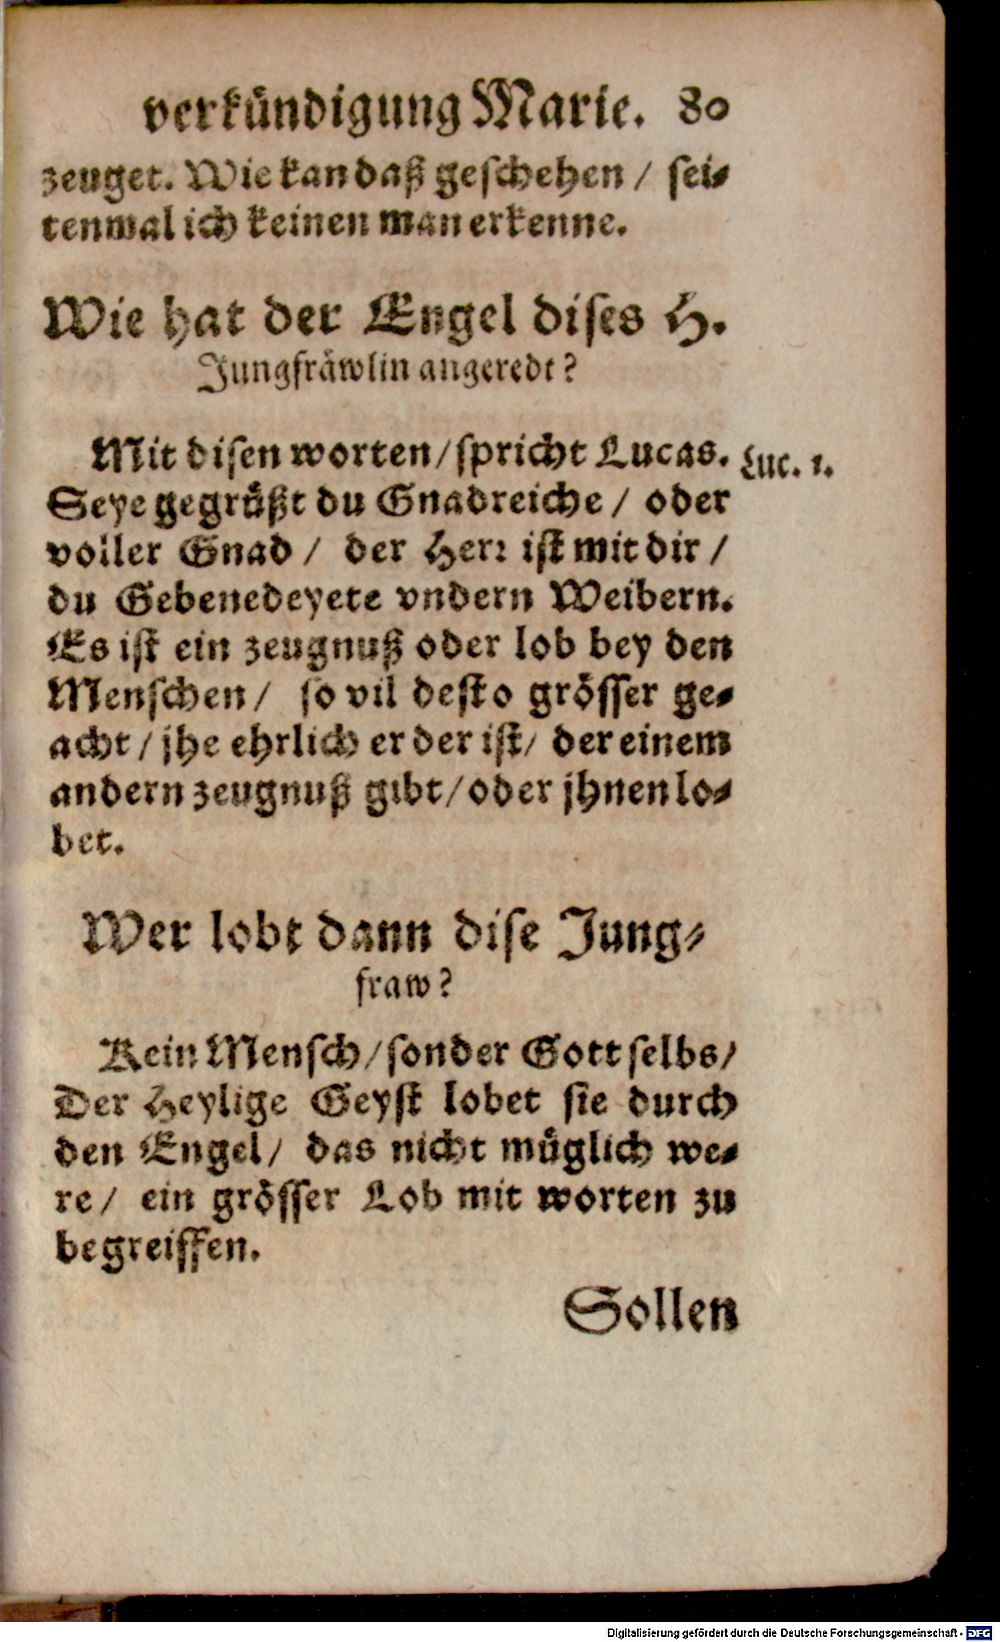 verkündigung Marie. 80
zeuget. Wie kan daß geschehen / sei-
tenmal ich keinen man erkenne.
Wie hat der Engel dises H.
Jungfräwlin angeredt?
Mit disen worten / spricht Lucas. Luc. 1.
Seye gegrüßt du Gnadreiche / oder
voller Gnad / der Herr ist mit dir /
du Gebenedeyete vndern Weibern.
Es ist ein zeugnuß oder lob bey den
Menschen / so vil desto grösser ge-
acht / jhe ehrlich er der ist / der einem
andern zeugnuß gibt / oder jhnen lo-
bet.
Wer lobt dann dise Jung-
fraw?
Kein Mensch / sonder Gott selbs /
Der Heylige Geyst lobet sie durch
den Engel / das nicht müglich we-
re / ein grösser Lob mit worten zu
begreiffen.
Sollen
Digitalisierung gefördert durch die Deutsche Forschungsgemeinschaft - DFG